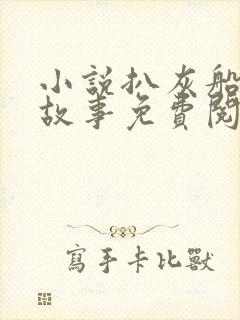 小說扒灰船
故事免費閱
寫手卡比獸